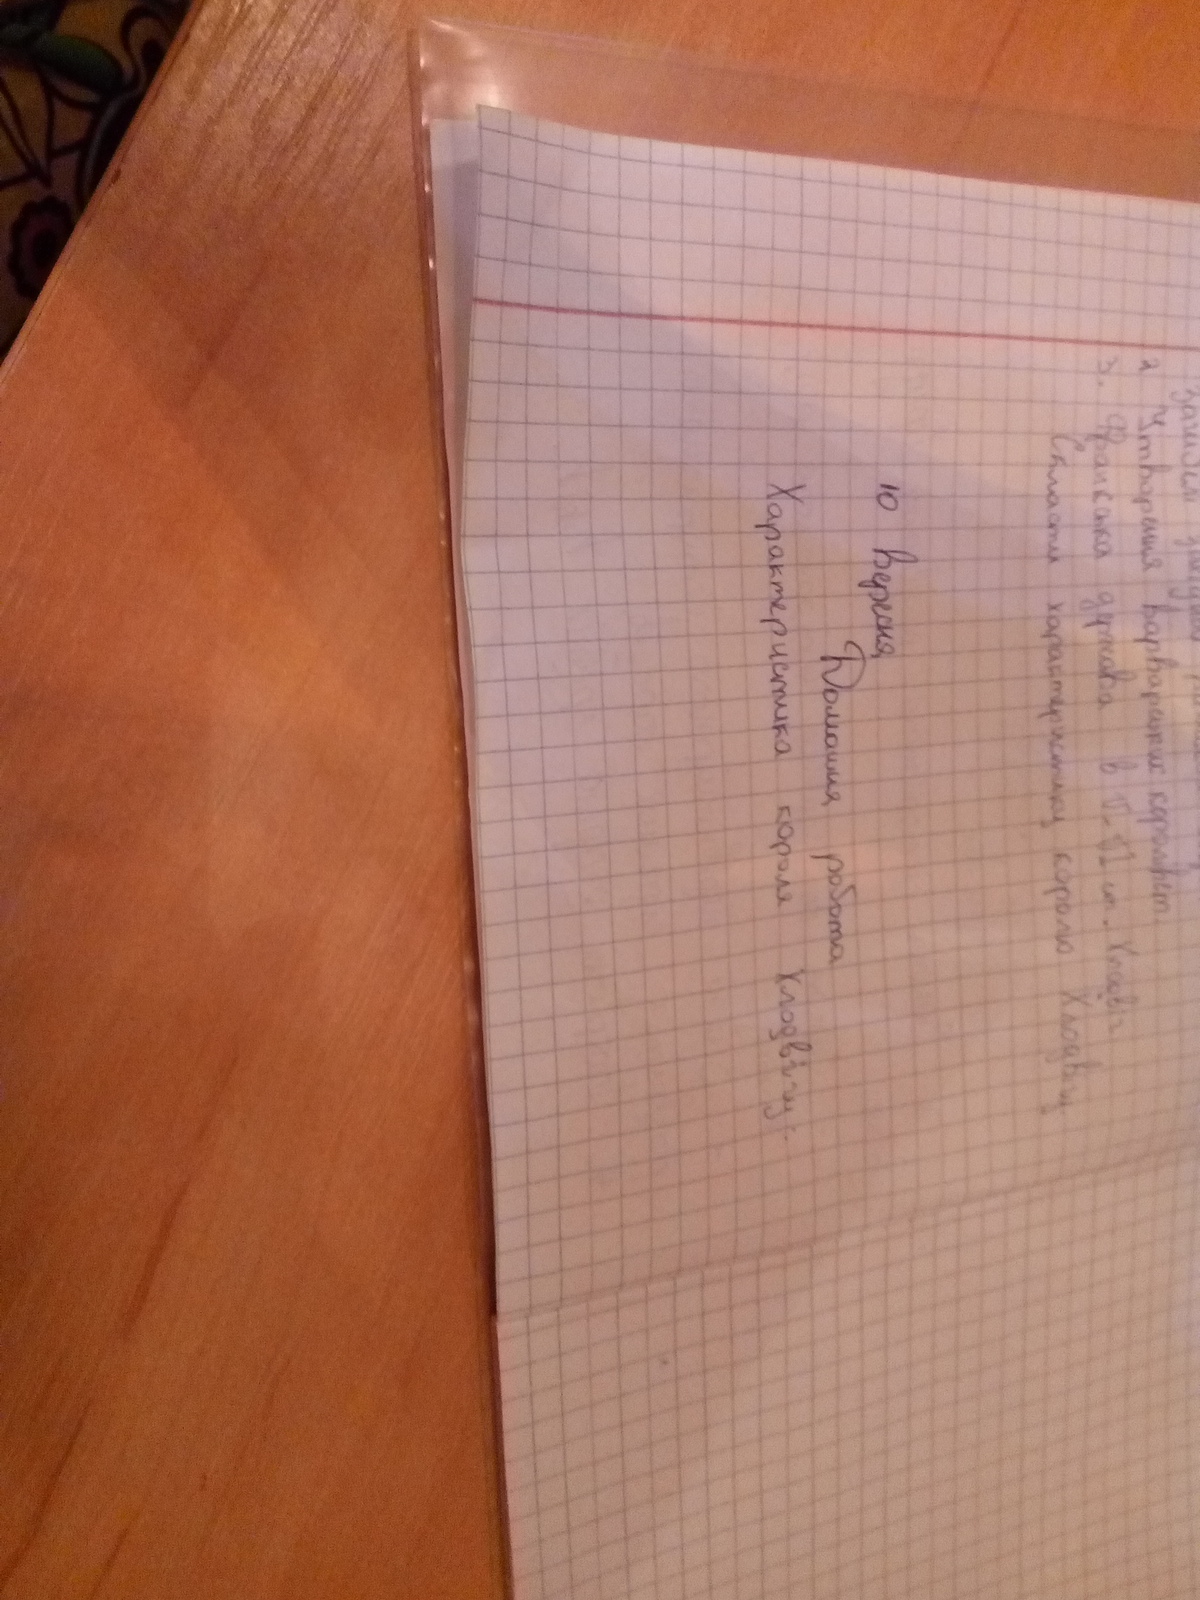 2 Утворення варварських королівст
3. Франкська держава в V-VI ст. Хлодвіг
Скласти характеристику королю Хлодвігу
10 вересня
Домашня робота
Характеристика короля Хлодвігу: